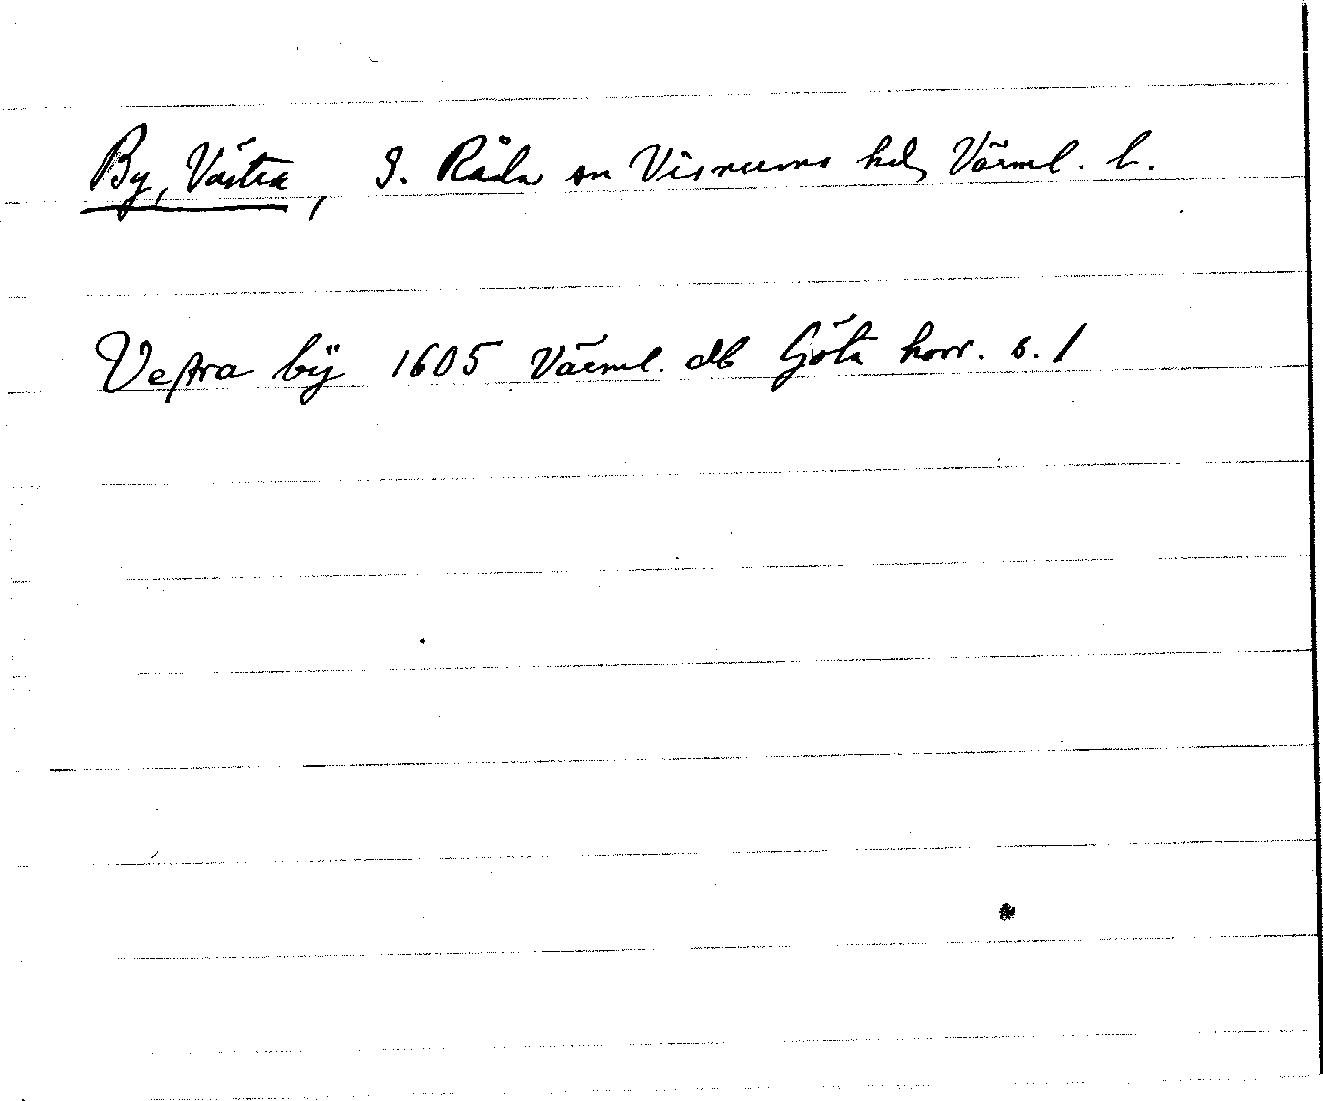 By, Västra, S. Råda sn Visnums hd, Värml. l.
Vestra bÿ 1605 Värml. db Göta hovr. s. 1